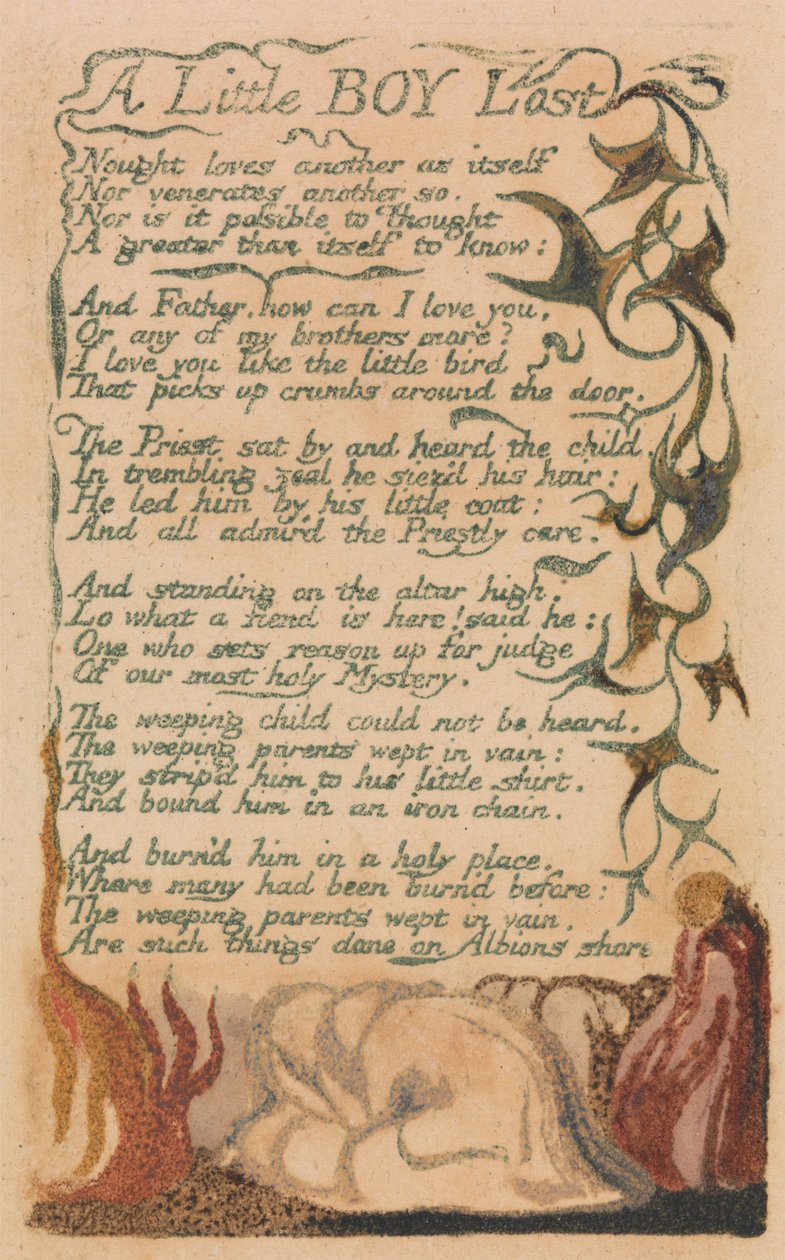 A Little BOY Lost
Nought loves another as itself
Nor venerates another so.
Nor is it possible to Thought
A greater than itself to know:
And Father, how can I love you,
Or any of my brothers more?
I love you like the little bird
That picks up crumbs around the door.
The Priest sat by and heard the child.
In trembling zeal he siez'd his hair:
He led him by his little coat:
And all admir'd the Priestly care.
And standing on the altar high.
Lo what a fiend is here! said he:
One who sets reason up for judge
Of our most holy Mystery.
The weeping child could not be heard.
The weeping parents wept in vain:
They strip'd him to his little shirt.
And bound him in an iron chain.
And burn'd him in a holy place.
Where many had been burn'd before:
The weeping parents wept in vain.
Are such things done on Albions shore